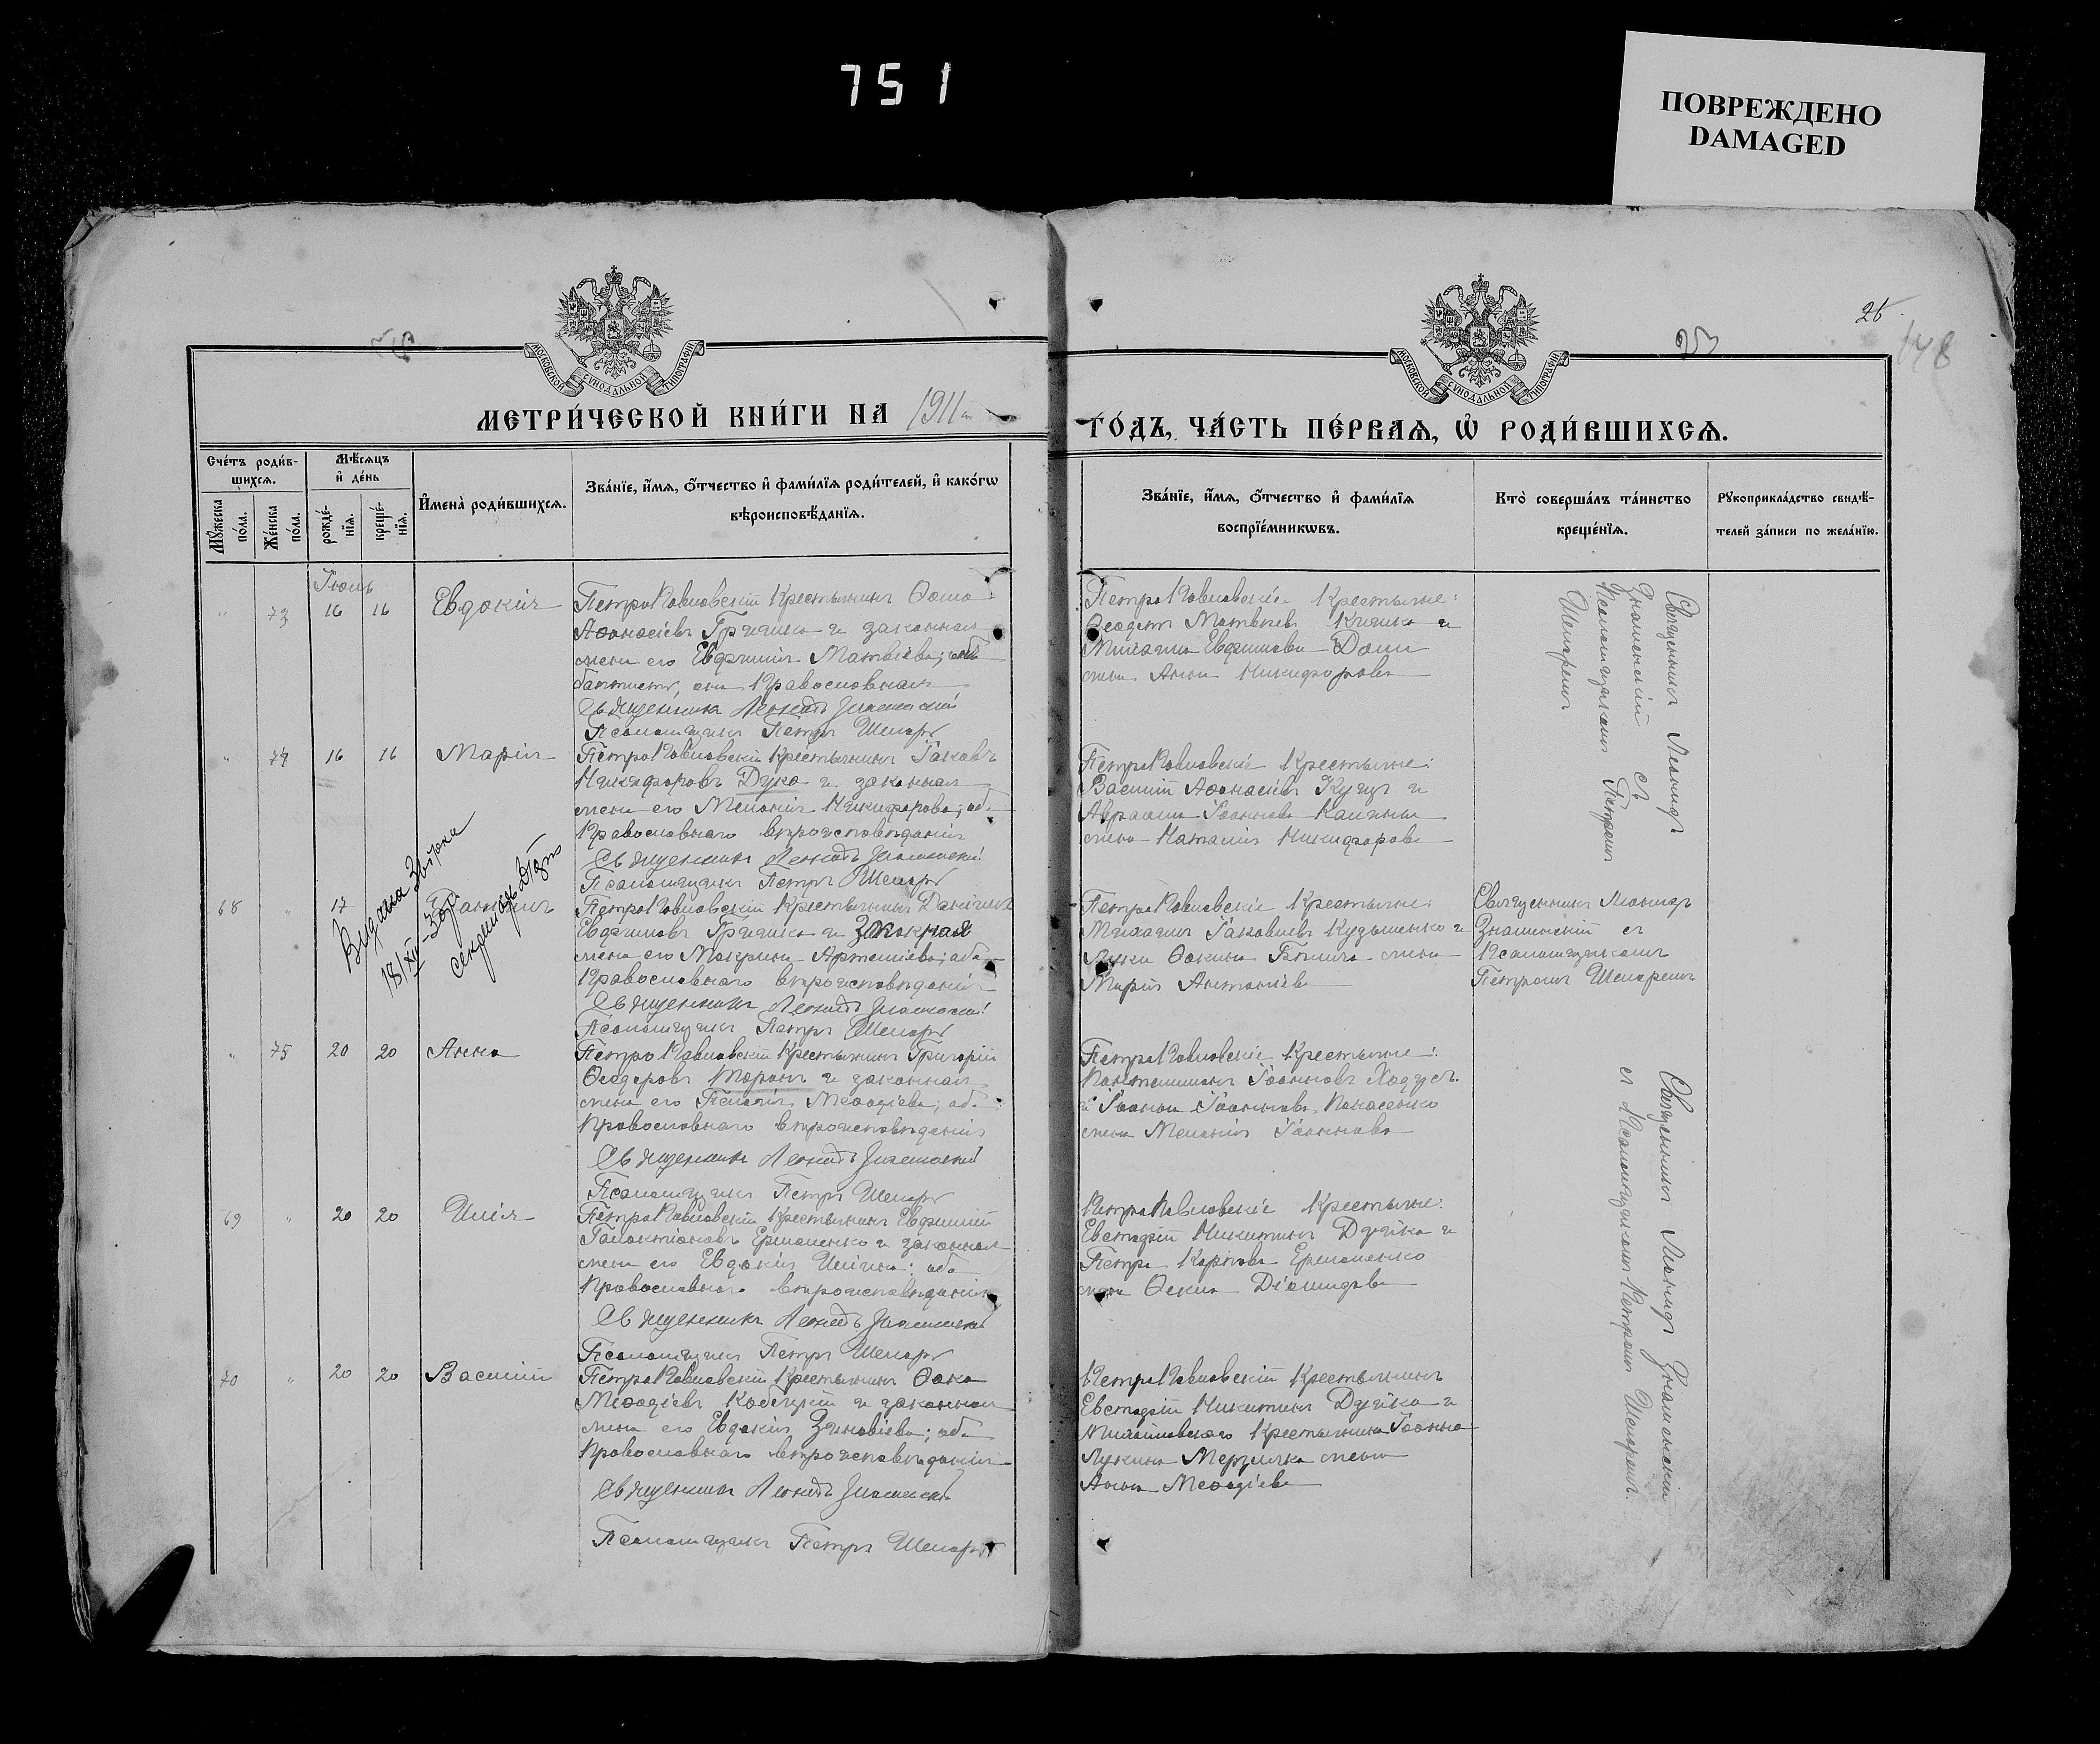 751
ПОВРЕЖДЕНО
DAMAGED
26
23
148
МОСКОВСКОЙ СУНОДАЛЬНОЙ ТИПОГРАФІИ
МОСКОВСКОЙ СУНОДАЛЬНОЙ ТИПОГРАФІИ
МЕТРИ́ЧЕСКОЙ КНИ́ГИ НА 1911
ГО́ДЪ, ЧА́СТЬ ПЕ́РВАЯ, Ѡ РОДИ́ВШИХСЯ.
Сче́тъ роди́в-
шихся.
Мꙋ́жеска
по́ла.
Же́нска
по́ла.
Мѣ́сяцъ
и҆ де́нь
рожде́-
нїя.
креще́-
нїя.
И҆мена̀ роди́вшихся.
Зва́нїе, и҆́мя, ѻ҆́тчество и҆ фами́лїя роди́телей, и҆ како́гѡ
вѣроисповѣ́данїя.
Зва́нїе, и҆́мя, ѻ҆́тчество и҆ фами́лїя
воспрїе́мникѡвъ.
Кто̀ соверша́лъ та́инство
креще́нїя.
Рꙋкоприкла́дство свидѣ́-
телей за́писи по жела́нїю.
Іюль
" 73 16 16 Евдокія
Петропавловскій крестьянинъ Ѳома
Аѳанасіевъ Грицико и законная
жена его Евфимія Матвѣева; онъ
баптистъ, она православная
Священникъ Леонидъ Знаменскій
Псаломщикъ Петръ Шепарь
Петропавловскіе крестьяне:
Ѳеодотъ Матвѣевъ и
Михаила Евфимова
жена Анна Никифорова
Священникъ Леонидъ
Знаменскій съ
псаломщикомъ Петромъ
Шепаремъ
" 74 16 16 Марія
Петропавловскій крестьянинъ Іаковъ
Никифоровъ Дуко и законная
жена его Меланія Никифорова; оба
православнаго вѣроисповѣданія
Священникъ Леонидъ Знаменскій
Псаломщикъ Петръ Шепарь
Петропавловскіе крестьяне:
Василій Аѳанасіевъ Куцъ и
Авраама Іоаннова
жена Наталія Никифорова
68 " 17 Даніилъ
Видана Звірка
18/XII-30р.
секретарь
Петропавловскій крестьянинъ Даніилъ
Евфимовъ Грицико и законная
жена его Макрина Артеміева; оба
православнаго вѣроисповѣданія
Священникъ Леонидъ Знаменскій
Псаломщикъ Петръ Шепарь
Петропавловскіе крестьяне:
Михаилъ Іаковлевъ Кузьменко и
Луки Ѳокина жена
Марія Антоніева
Священникъ Леонидъ
Знаменскій съ
псаломщикомъ
Петромъ Шепаремъ
" 75 20 20 Анна
Петропавловскій крестьянинъ Григорій
Ѳеодоровъ Таранъ и законная
жена его Пелагія Меѳодіева; оба
православнаго вѣроисповѣданія
Священникъ Леонидъ Знаменскій
Псаломщикъ Петръ Шепарь
Петропавловскіе крестьяне:
Пантелеимонъ Іоанновъ
и Іоанна Іоаннова Панасенко
жена Меланія Іоаннова
Священникъ Леонидъ Знаменскій
съ псаломщикомъ Петромъ Шепаремъ.
69 " 20 20 Илія
Петропавловскій крестьянинъ Евфимій
Галактіоновъ Ермоленко и законная
жена его Евдокія Иліина; оба
православнаго вѣроисповѣданія
Священникъ Леонидъ Знаменскій
Псаломщикъ Петръ Шепарь
Петропавловскіе крестьяне:
Евстафій Никитинъ Дудка и
Петра Карпова Ермоленко
жена Ѳекла Діомидова
70 " 20 20 Василій
Петропавловскій крестьянинъ Ѳока
Меѳодіевъ Кобецкій и законная
жена его Евдокія Зиновіева; оба
православнаго вѣроисповѣданія
Священникъ Леонидъ Знаменскій
Псаломщикъ Петръ Шепарь
Петропавловскій крестьянинъ
Евстафій Никитинъ Дудка и
Михайловскаго крестьянина Іоанна
Лукина жена
Анна Меѳодіева